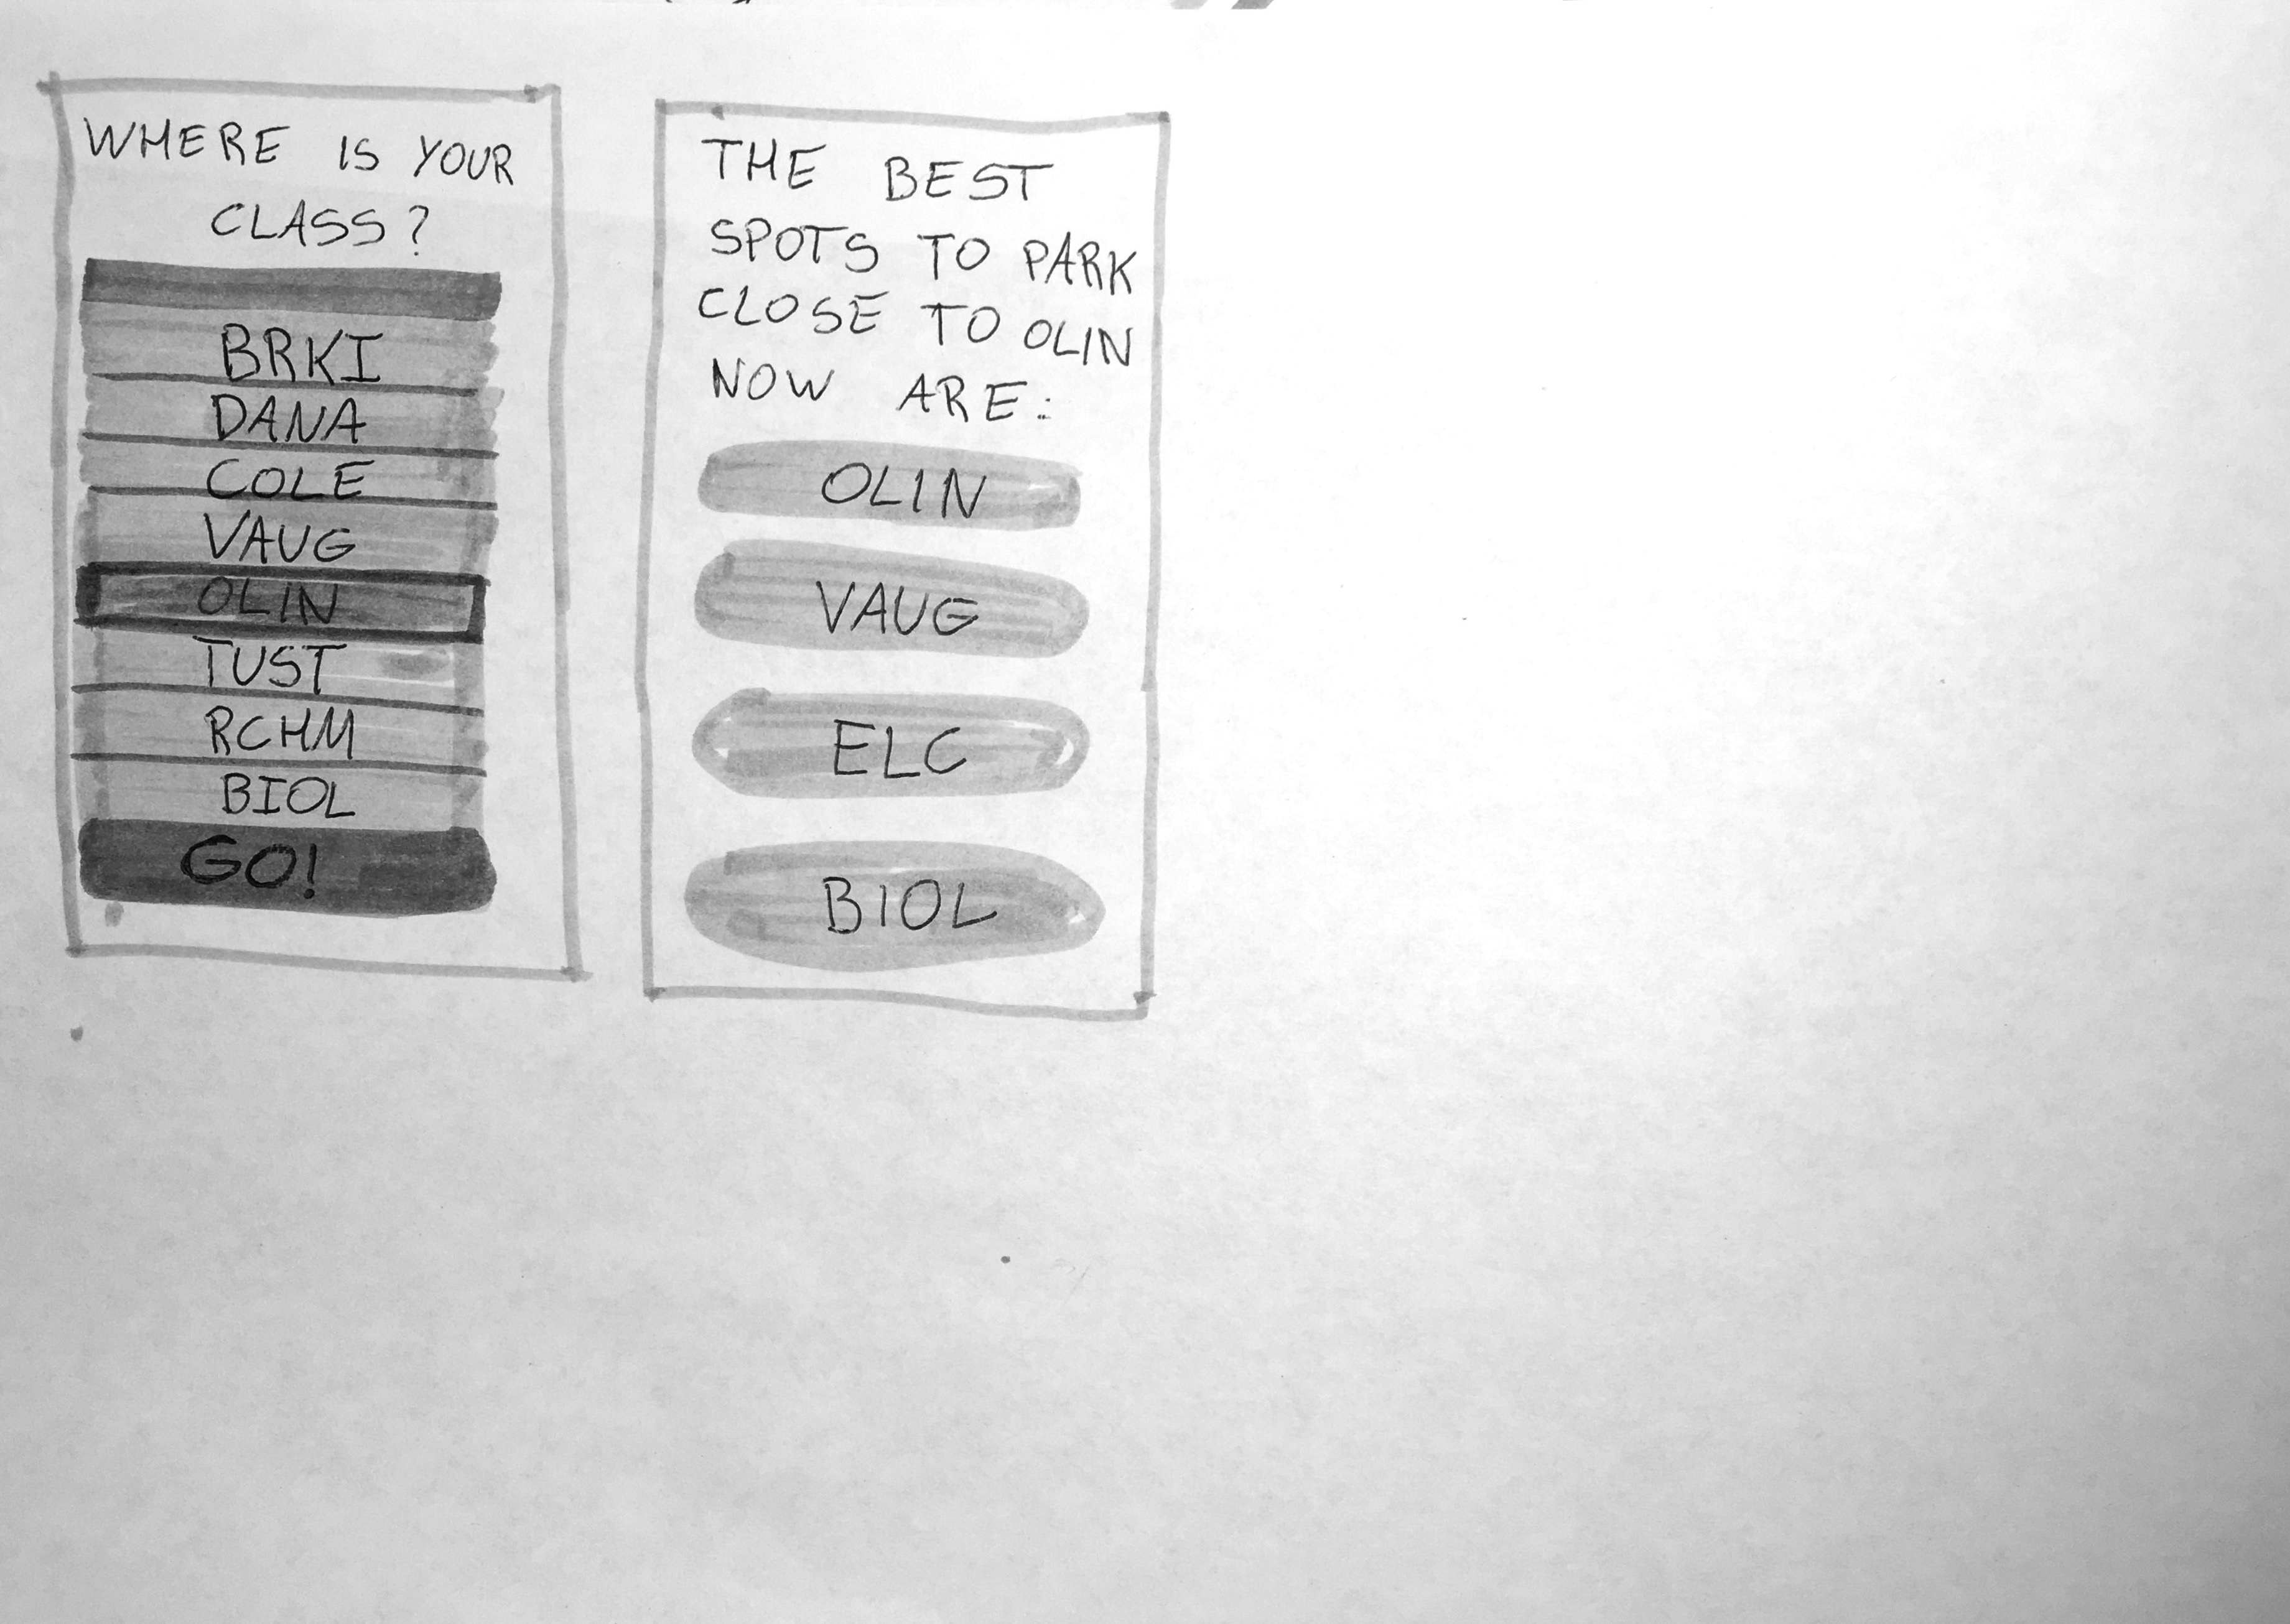 WHERE IS YOUR
CLASS?
BRKI
DANA
COLE
VAUG
OLIN
TUST
RCHM
BIOL
GO!
THE BEST
SPOTS TO PARK
CLOSE TO OLIN
NOW ARE:
OLIN
VAUG
ELC
BIOL